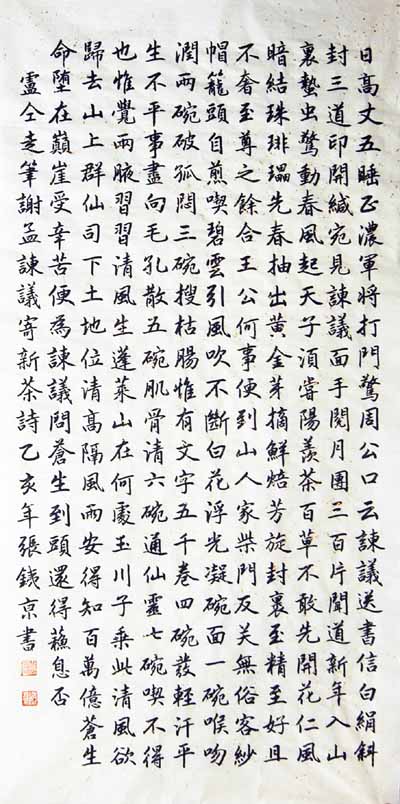 日高丈五睡正濃軍將打門驚周公口云諫議送書信白絹斜
封三道印開緘宛見諫議面手閱月團三百片聞道新年入山
裏蟄虫驚動春風起天子須嘗陽羨茶百草不敢先開花仁風
暗結珠琲瓃先春抽出黄金芽摘鮮焙芳旋封裹至精至好且
不奢至尊之餘合王公何事便到山人家柴門反关無俗客紗
帽籠頭自煎喫碧雲引風吹不斷白花浮光凝碗面一碗喉吻
潤兩碗破孤悶三碗搜枯腸惟有文字五千卷四碗發輕汗平
生不平事盡向毛孔散五碗肌骨清六碗通仙靈七碗喫不得
也惟覺兩腋習習清風生蓬萊山在何處玉川子乘此清風欲
歸去山上群仙司下土地位清高隔風雨安得知百萬億蒼生
命堕在巔崖受辛苦便為諫議問蒼生到頭還得蘓息否
盧仝走筆謝孟諫議寄新茶詩乙亥年張銕京書